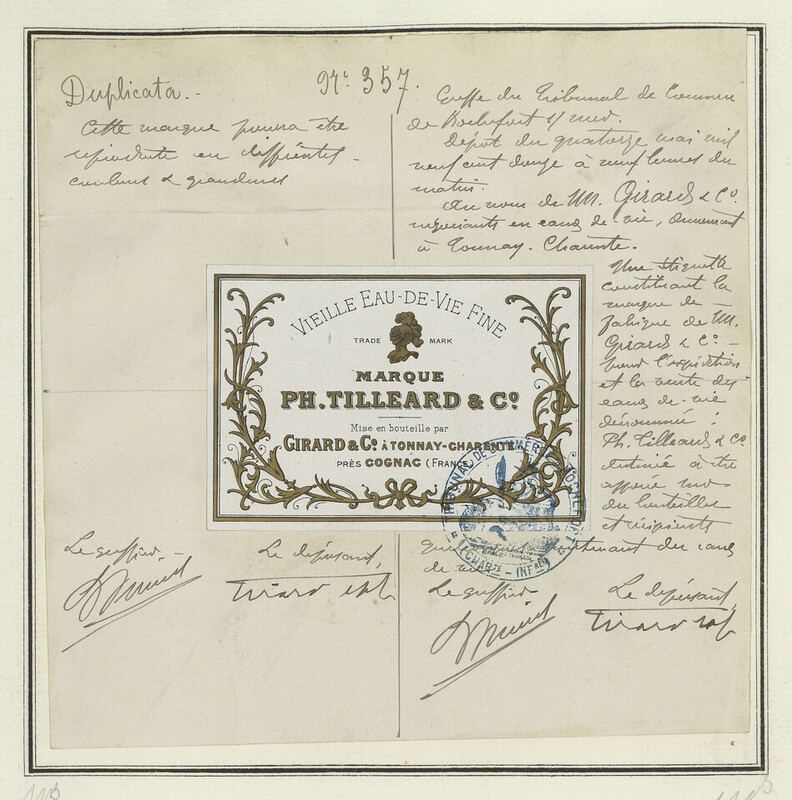 Duplicata.-
Cette marque pourra être
reproduite en différentes
couleurs & grandeurs
N° 357.
Greffe du Tribunal de Commerce
de Rochefort s/ mer.
Dépôt du quatorze mai mil
neuf cent douze à neuf heures du
matin.
Au nom de MM. Girard & C°.
négociants en eaux-de-vie, demeurant
à Tonnay-Charente.
Une étiquette
constituant la
marque de
fabrique de MM.
Girard & C° -
pour l'expédition
et la vente des
eaux-de-vie
dénommée :
Ph. Tilleard & C°
destinée à être
apposée sur
des bouteilles
et récipients
contenant des eaux
de vie
VIEILLE EAU-DE-VIE FINE
TRADE MARK
MARQUE
PH. TILLEARD & C°
Mise en bouteille par
GIRARD & C° À TONNAY-CHARENTE
PRÈS COGNAC (FRANCE)
TRIBUNAL DE COMMERCE ROCHEFORT
(CHARTE - INFRE)
Le greffier -
Le déposant,
Le greffier
Le déposant,